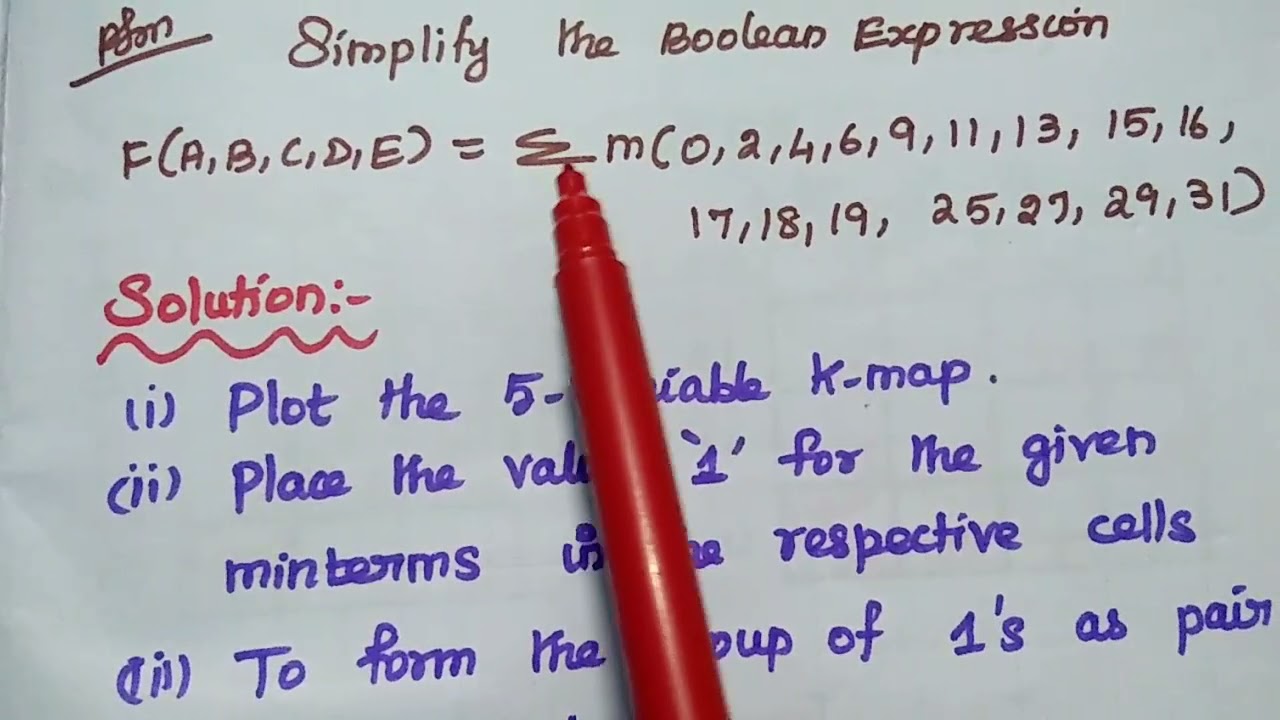 Pbm Simplify the Boolean Expression
F(A,B,C,D,E) = Σ m(0,2,4,6,9,11,13, 15,16,
17,18,19, 25,27, 29,31)
Solution:-
(i) Plot the 5- iable k-map.
(ii) Place the val '1' for the given
minterms in respective cells
(iii) To form the oup of 1's as pair